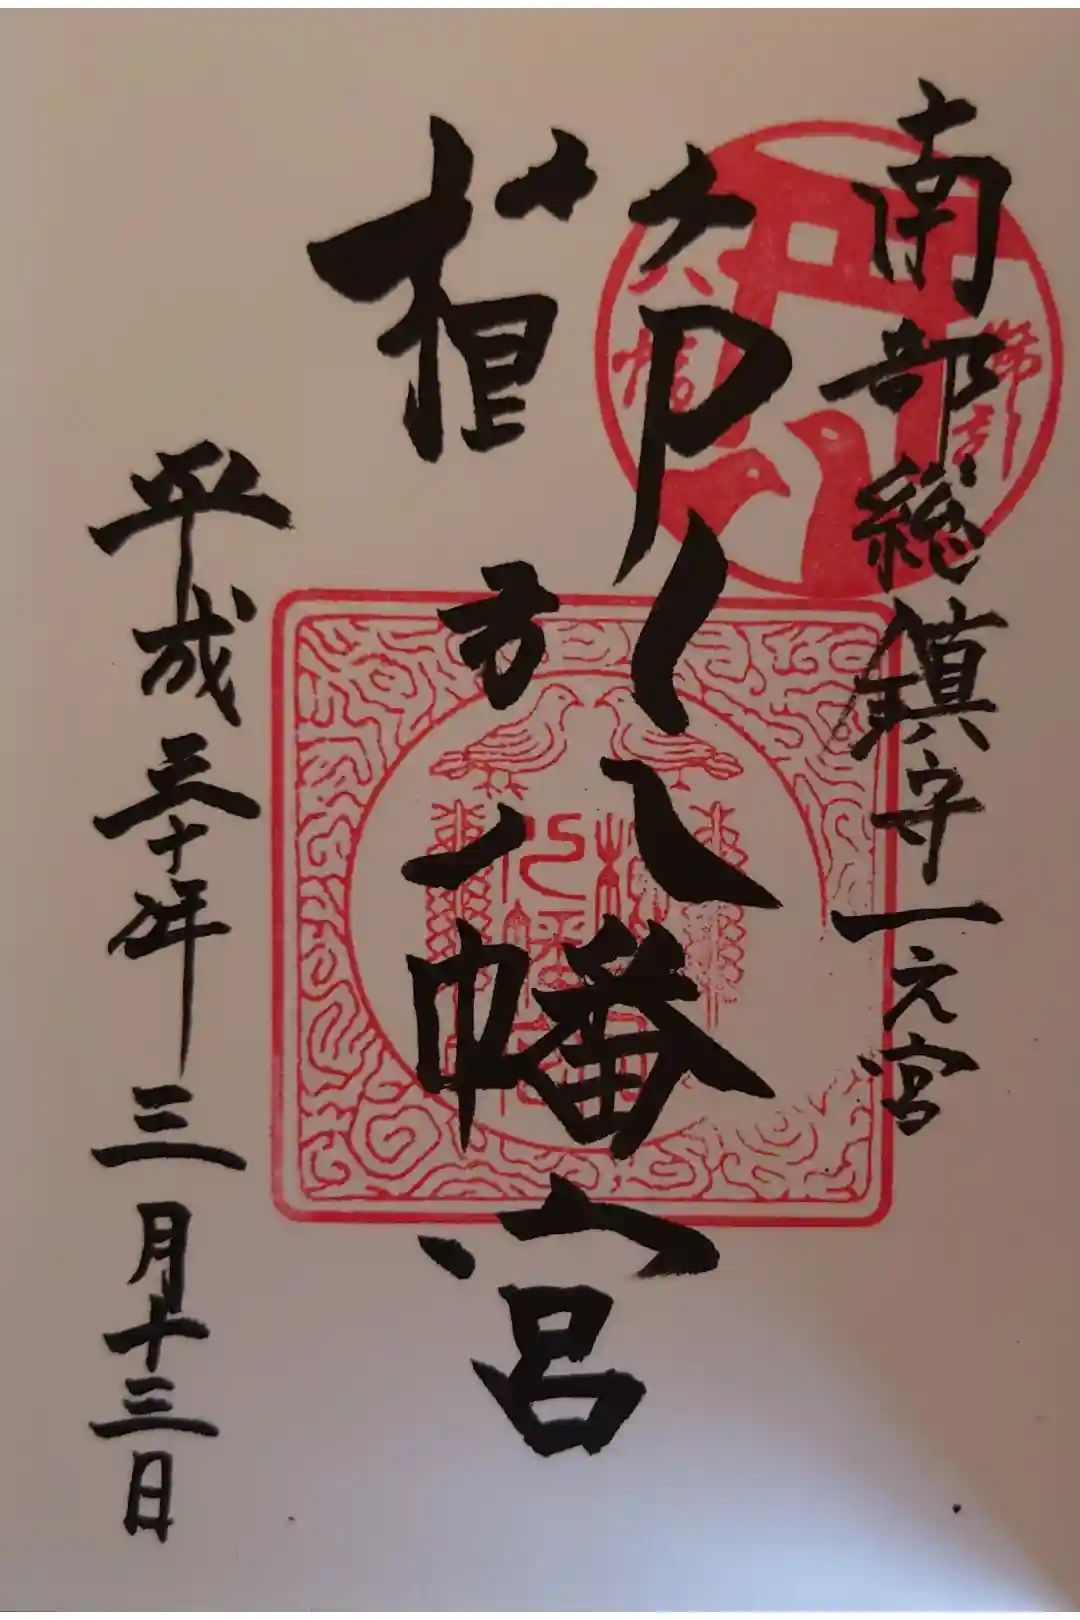 南部総鎮守一之宮
櫛引八幡宮
平成三十年三月十三日
櫛引
八幡